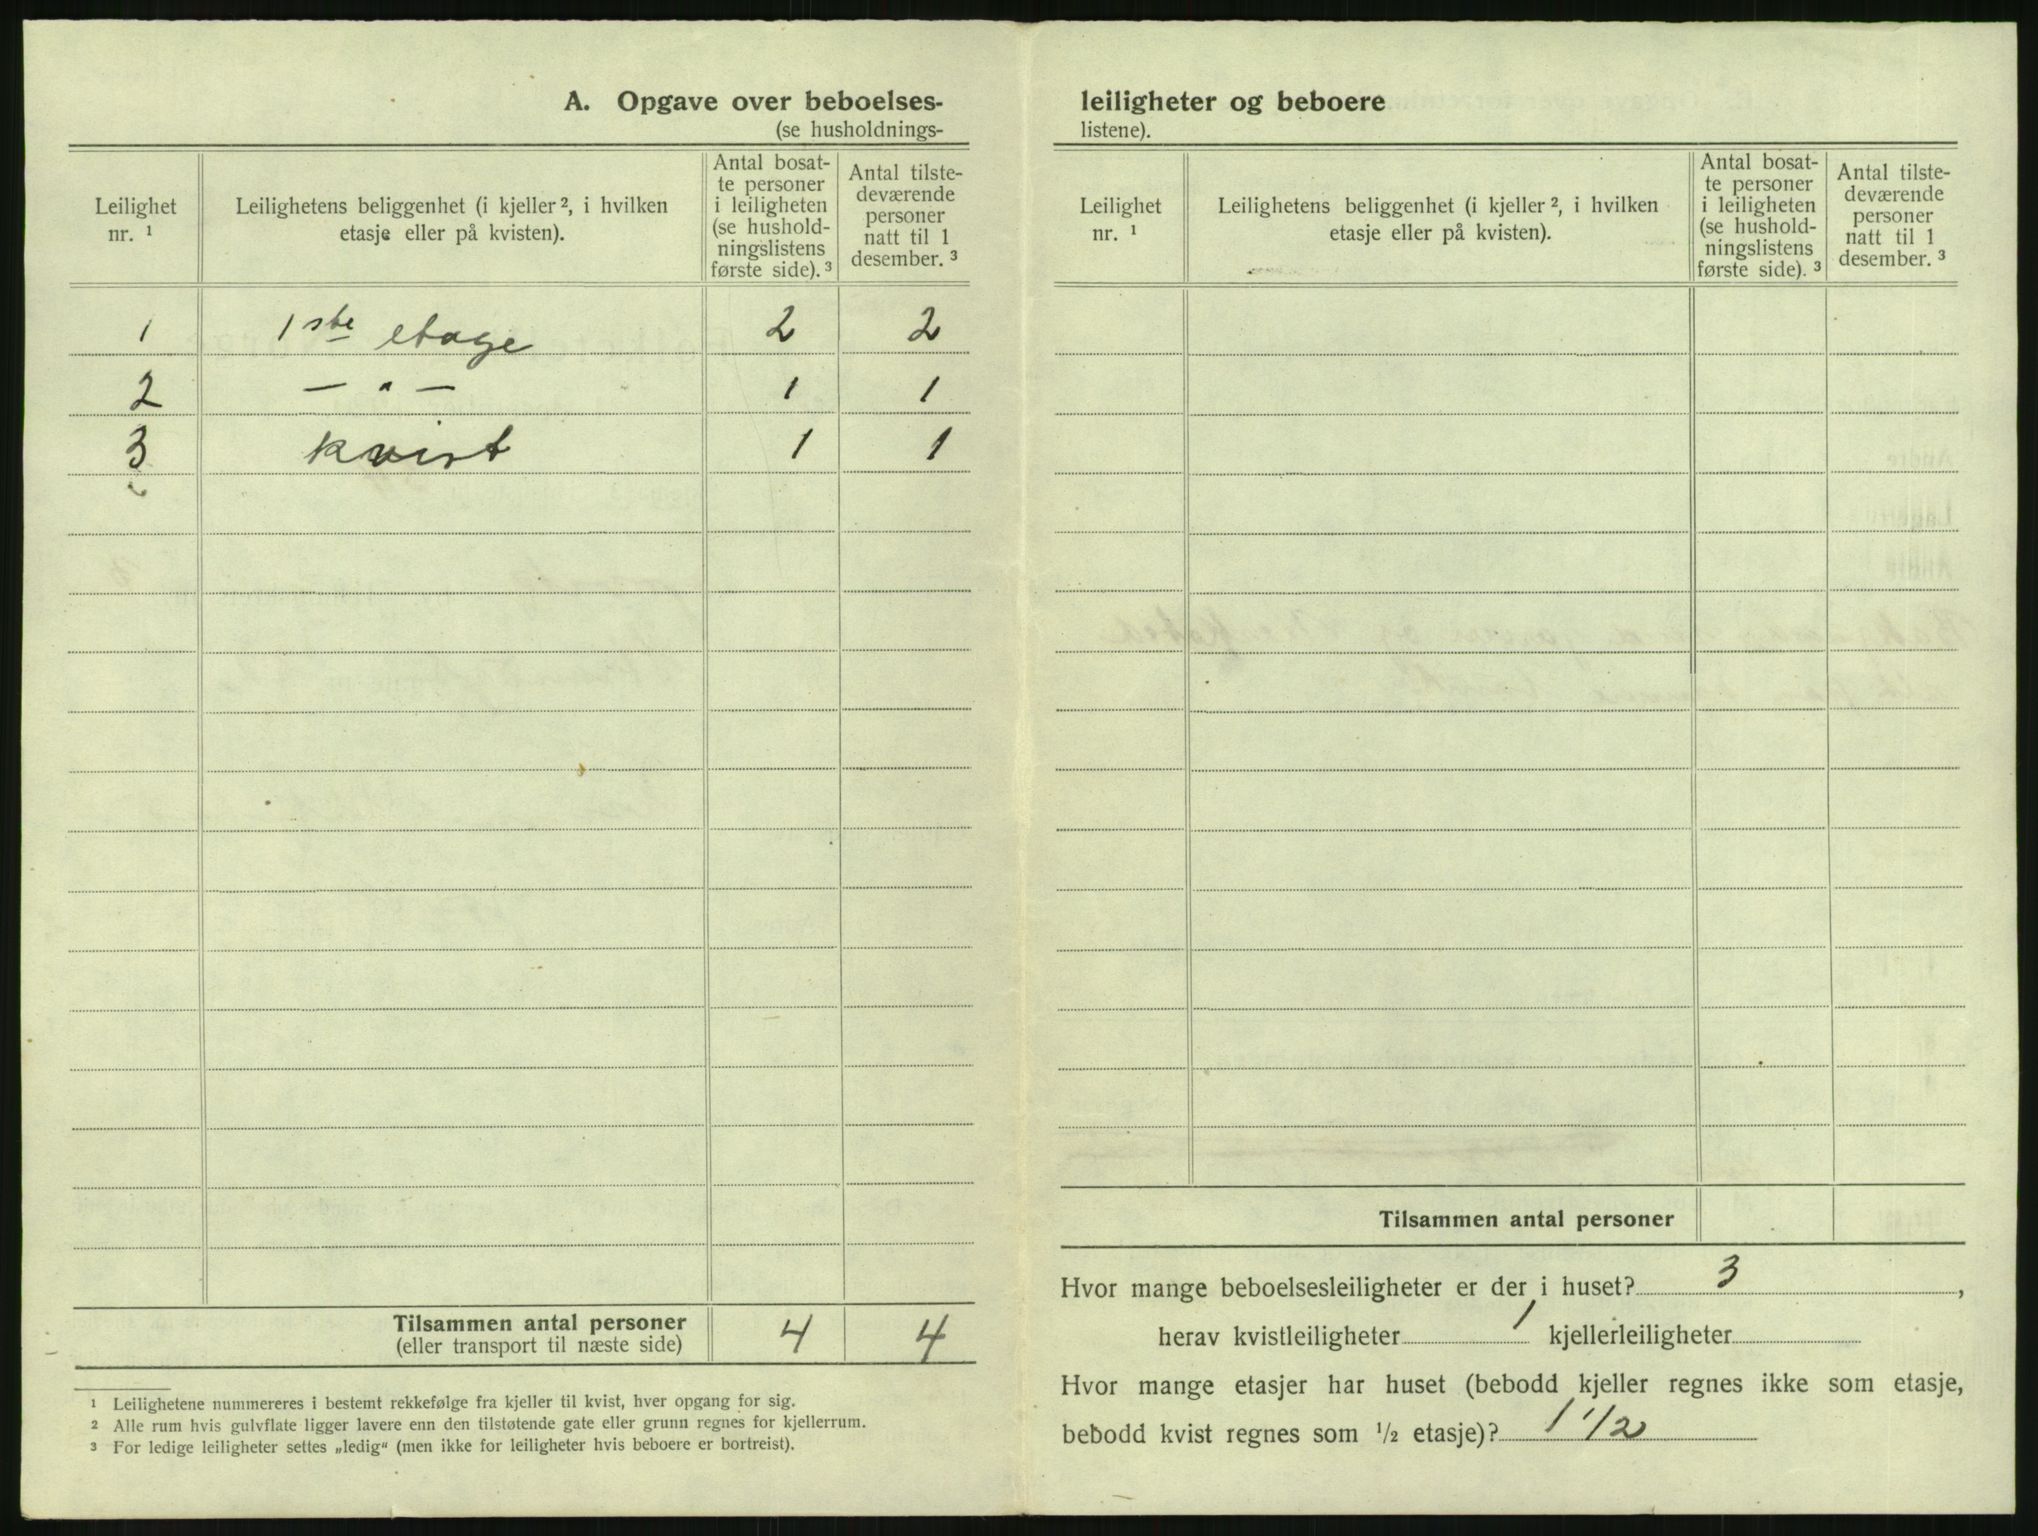 A. Opgave over beboelses-
(se husholdnings-
Leilighet nr. ¹
Leilighetens beliggenhet (i kjeller ², i hvilken
etasje eller på kvisten).
Antal bosat-
te personer
i leiligheten
(se hushold-
ningslistens
første side). ³
Antal tilste-
deværende
personer
natt til 1
desember. ³
1 1ste etage 2 2
2 — " — 1 1
3 kvist 1 1
Tilsammen antal personer 4 4
(eller transport til næste side)
¹ Leilighetene nummereres i bestemt rekkefølge fra kjeller til kvist, hver opgang for sig.
² Alle rum hvis gulvflate ligger lavere enn den tilstøtende gate eller grunn regnes for kjellerrum.
³ For ledige leiligheter settes „ledig“ (men ikke for leiligheter hvis beboere er bortreist).
leiligheter og beboere
listene).
Leilighet nr. ¹
Leilighetens beliggenhet (i kjeller ², i hvilken
etasje eller på kvisten).
Antal bosat-
te personer
i leiligheten
(se hushold-
ningslistens
første side). ³
Antal tilste-
deværende
personer
natt til 1
desember. ³
Tilsammen antal personer
Hvor mange beboelsesleiligheter er der i huset? 3,
herav kvistleiligheter 1 kjellerleiligheter
Hvor mange etasjer har huset (bebodd kjeller regnes ikke som etasje,
bebodd kvist regnes som ½ etasje)? 1 1/2